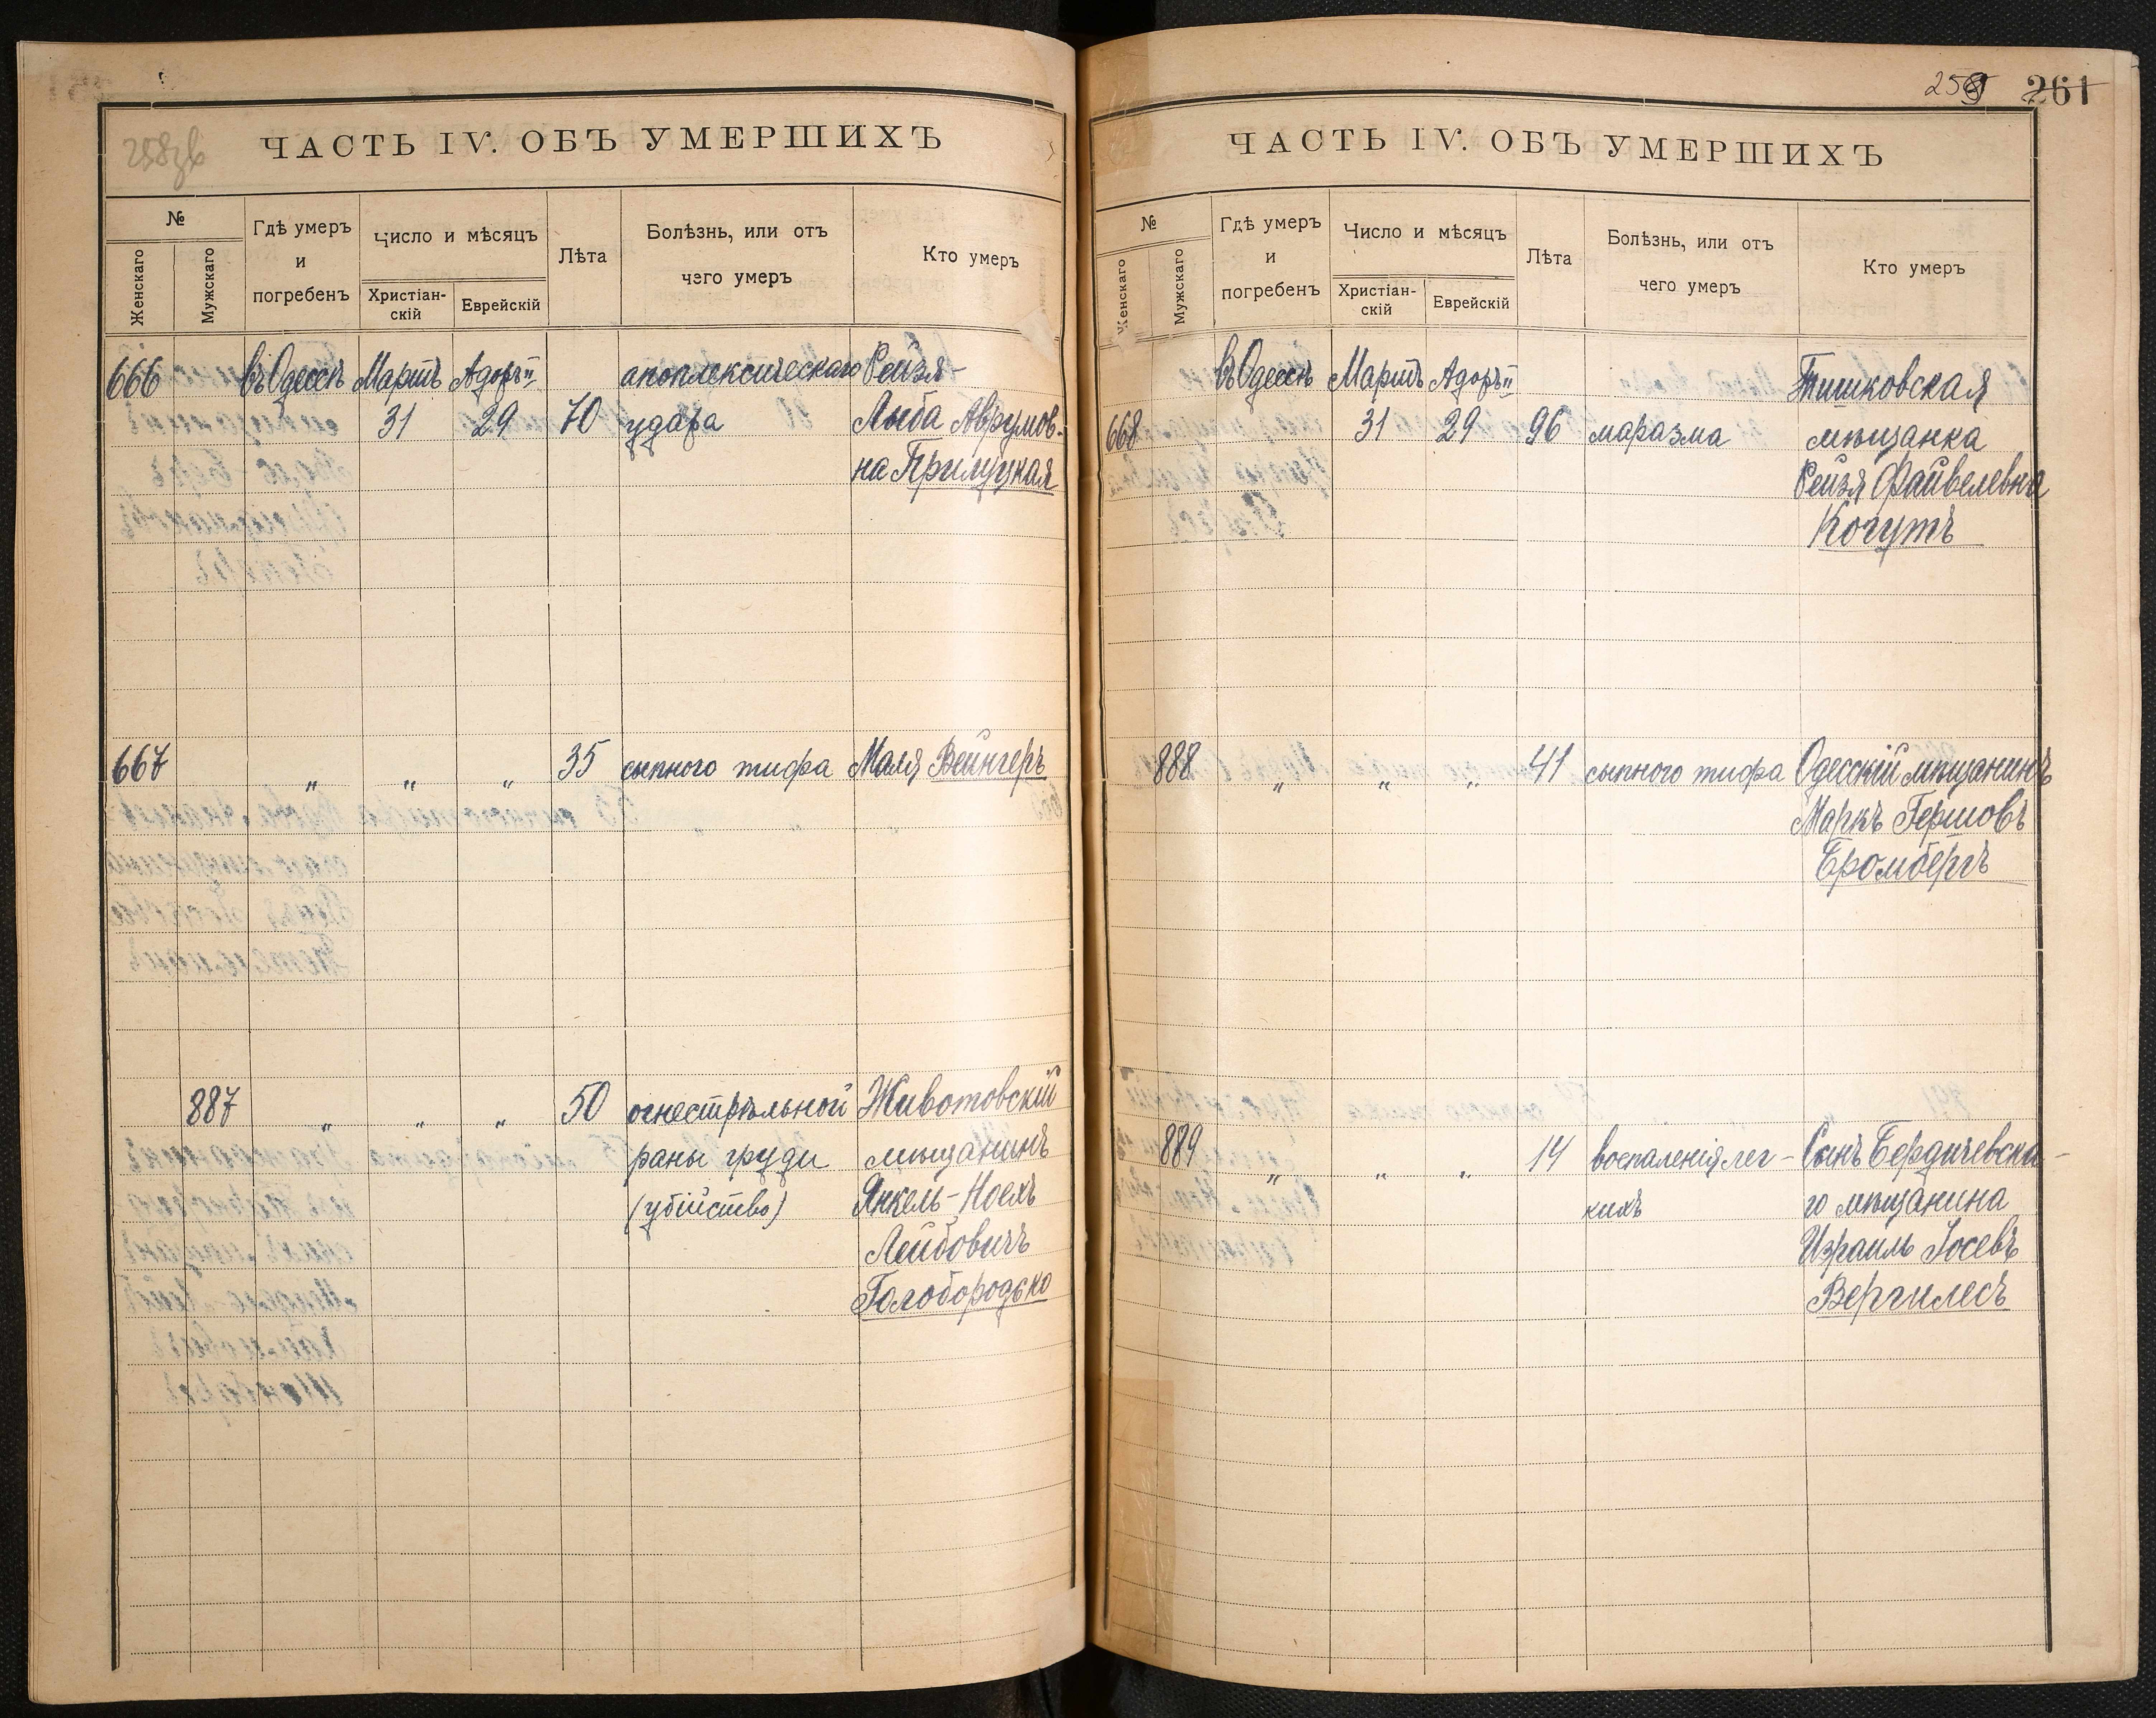 258зв
ЧАСТЬ IV. ОБЪ УМЕРШИХЪ
№
Женскаго
Мужскаго
Гдѣ умеръ
и
погребенъ
Число и мѣсяцъ
Христіан-
скій
Еврейскій
Лѣта
Болѣзнь, или отъ
чего умеръ
Кто умеръ
666 въ Одессѣ Мартъ Адоръ II апоплексическаго Рейзя-
31 29 70 удара Лыба Аврумов-
на Прилуцкая
667 " " " 35 сыпного тифа Маля Вейнгеръ
887 " " " 50 огнестрѣльной Животовскій
раны груди мѣщанинъ
(убійство) Янкель-Ноехъ
Лейбовичъ
Голобородько
259 261
ЧАСТЬ IV. ОБЪ УМЕРШИХЪ
№
Женскаго
Мужскаго
Гдѣ умеръ
и
погребенъ
Число и мѣсяцъ
Христіан-
скій
Еврейскій
Лѣта
Болѣзнь, или отъ
чего умеръ
Кто умеръ
въ Одессѣ Мартъ Адоръ II Тишковская
668 31 29 96 маразма мѣщанка
Рейзя Файвелевна
Когутъ
888 " " " 41 сыпного тифа Одесскій мѣщанинъ
Маркъ Гершовъ
Бромбергъ
889 " " " 14 воспаленія лег- Сынъ Бердичевска-
кихъ го мѣщанина
Израиль Іосевъ
Вергилесъ